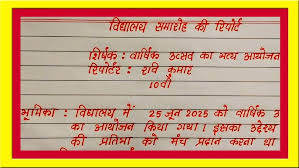 विद्यालय समारोह की रिपोर्ट
शीर्षक : वार्षिक उत्सव का भव्य आयोजन
रिपोर्टर : रवि कुमार
10वीं
भूमिका : विद्यालय में 25 जून 2025 को वार्षिक उ
का आयोजन किया गया। इसका उद्देश्य
की प्रतिभा को मंच प्रदान करना था